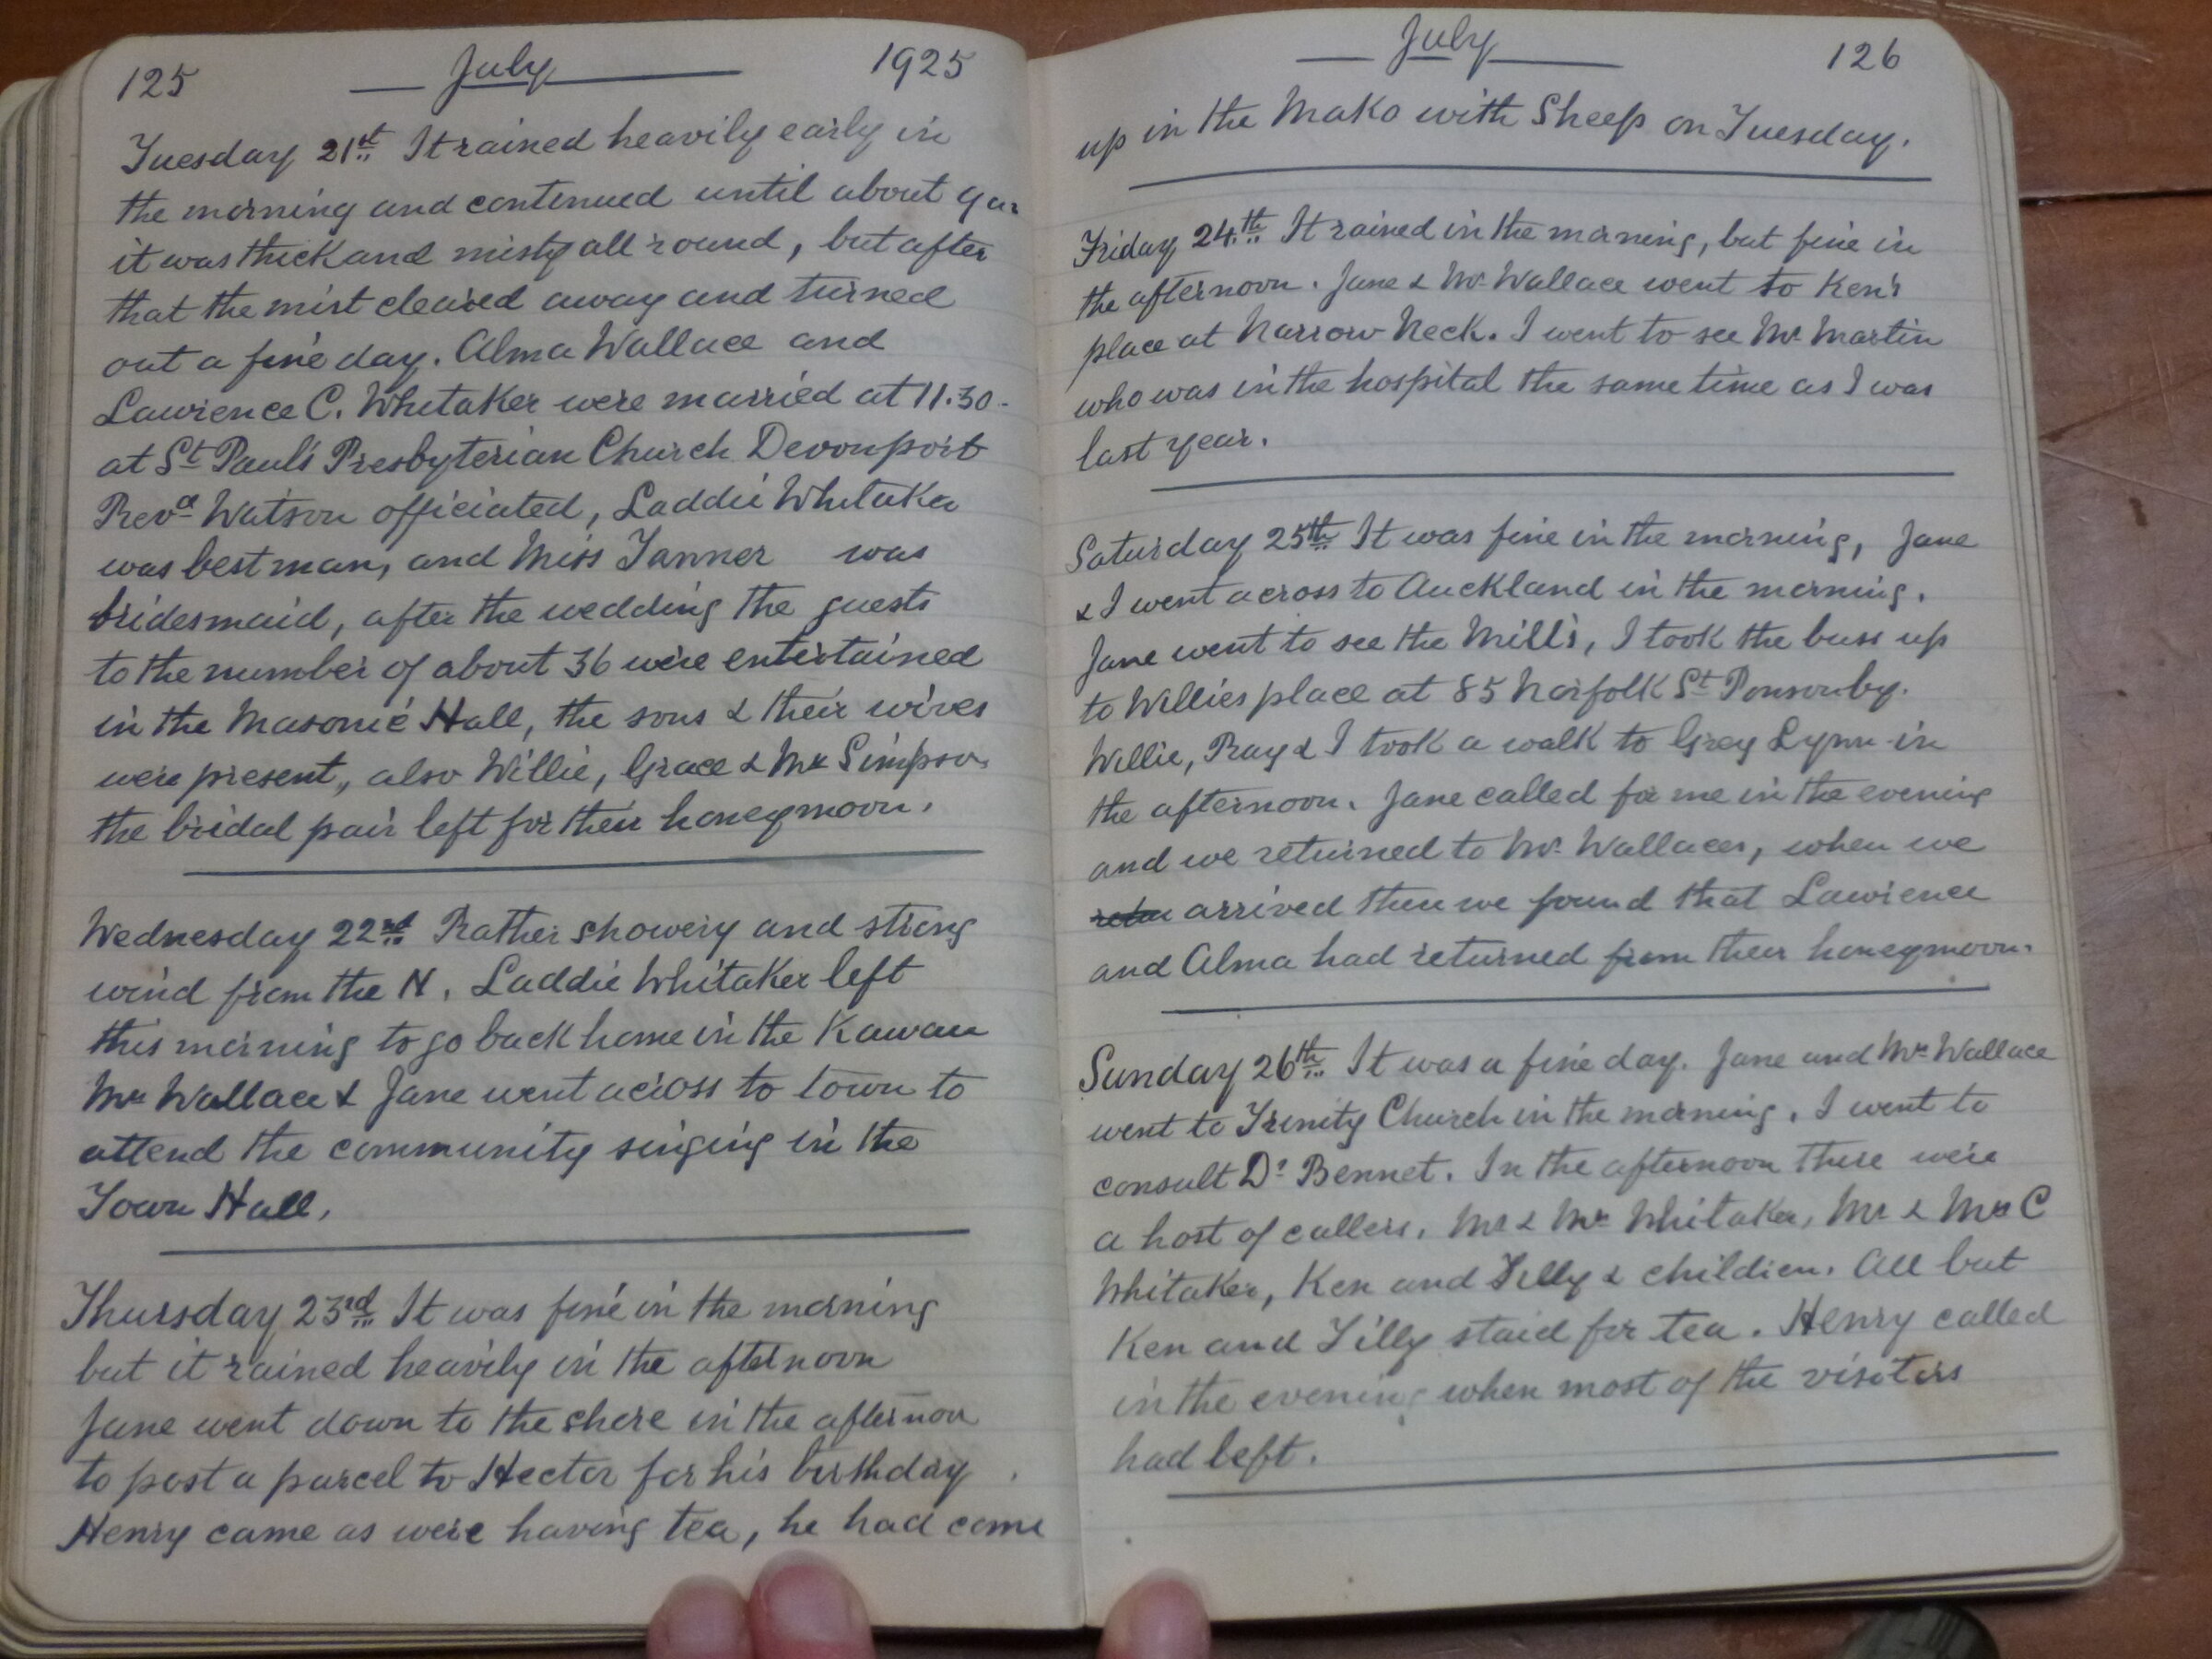 125 July 1925
Tuesday 21st It rained heavily early in
the morning and continued until about 9 a.m
it was thick and misty all round, but after
that the mist cleared away and turned
out a fine day. Alma Wallace and
Lawrence C. Whitaker were married at 11.30
at St Paul's Presbyterian Church Devonport
Revd Watson officiated, Laddie Whitaker
was best man, and Miss Tanner was
bridesmaid, after the wedding the guests
to the number of about 36 were entertained
in the Masonic Hall, the sons & their wives
were present, also Willie, Grace & Mrs Simpson
the bridal pair left for their honeymoon.
Wednesday 22nd Rather showery and strong
wind from the N. Laddie Whitaker left
this morning to go back home in the Kawau
Mrs Wallace & Jane went across to town to
attend the community singing in the
Town Hall,
Thursday 23rd It was fine in the morning
but it rained heavily in the afternoon
Jane went down to the shore in the afternoon
to post a parcel to Hector for his birthday.
Henry came as were having tea, he had come
July 126
up in the Mako with Sheep on Tuesday.
Friday 24th It rained in the morning, but fine in
the afternoon. Jane & Mrs Wallace went to Ken's
place at Narrow Neck. I went to see Mr Martin
who was in the hospital the same time as I was
last year.
Saturday 25th It was fine in the morning, Jane
& I went across to Auckland in the morning.
Jane went to see the Mills, I took the buss up
to Willies place at 85 Norfolk St Ponsonby.
Willie, Ray & I took a walk to Grey Lynn in
the afternoon. Jane called for me in the evening
and we returned to Mrs Wallaces, when we
arrived there we found that Lawrence
and Alma had returned from their honeymoon.
Sunday 26th It was a fine day. Jane and Mrs Wallace
went to Trinity Church in the morning. I went to
consult Dr Bennet. In the afternoon there were
a host of callers. Mr & Mrs Whitaker, Mr & Mrs C
Whitaker, Ken and Tilly & children. All but
Ken and Tilly staid for tea. Henry called
in the evening when most of the visitors
had left.